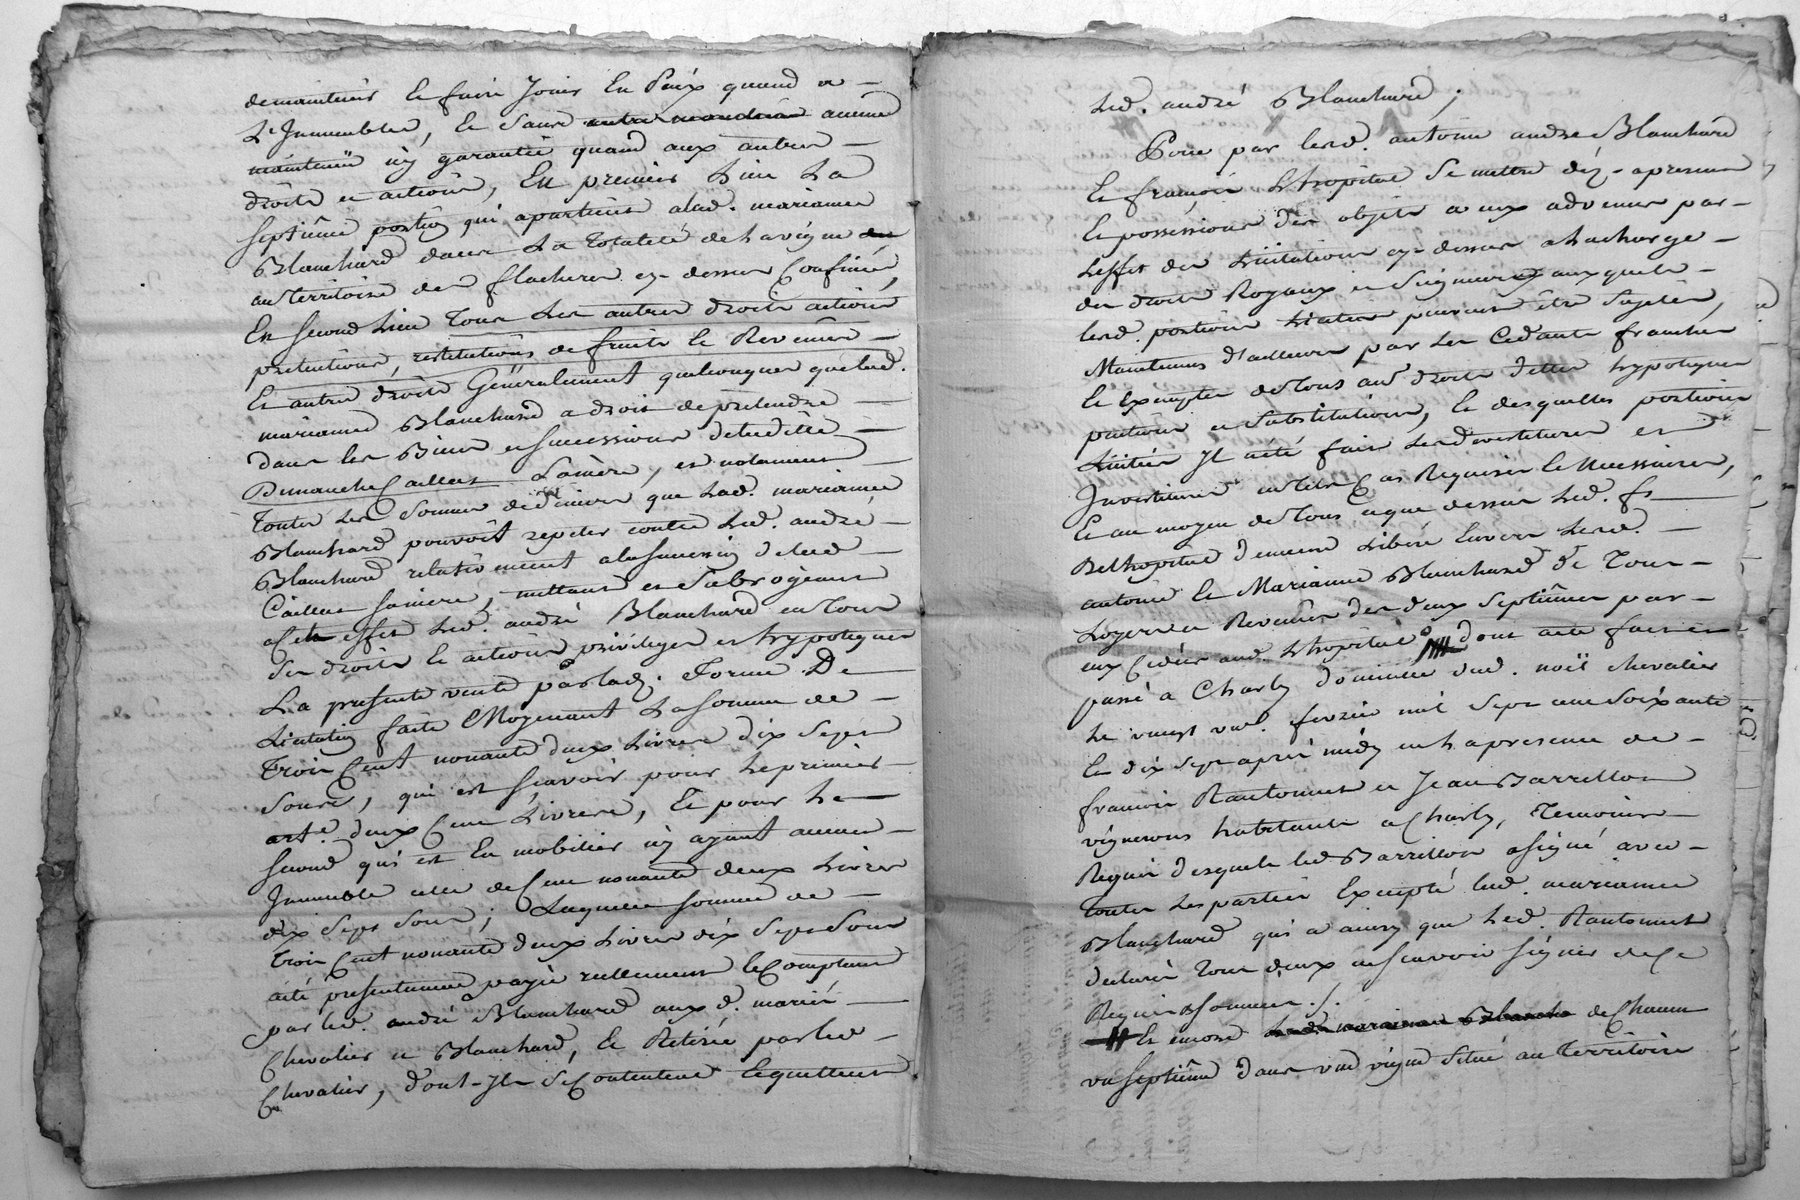 demaintenir Et faire Jouir En Paix quand a —
L'Immeubles, Et Sans autre aucune
maintenüe ny garantie quand aux autres —
droits et actions, En premier Lieu La
septiême portion qui apartient alad. marianne
Blanchard dans La totalité de La vigne
au territoire des flacheres cy-dessus Confinée,
En Second Lieu Tous Les autres droits actions
pretentions, restitutions de fruits Et Revenus —
Et autres droits Génèralement quelconques que lad.
marianne Blanchard a droit de pretendre —
dans les Biens et successions de laditte —
Dimanche Caillat Samère, et notament —
Toutes Les Sommes de deniers que Lad. marianne
Blanchard pouvoit repeter contre Led. andré —
Blanchard relativement alasuccession de lad —
Caillat samère, mettant et Subrogeant
acet effet Led. andré Blanchard en Tous
Ses droits Et actions privileges et hypoteques
La presente vente parlad. forme De
Licitation faite Moyenant La somme de —
Trois Cent nonante deux Livres dix Sept
Sous, qui est sçavoir pour Le premier
art.e deux Cent Livres, Et pour Le
second qui est En mobilier ny ayant aucun —
Immeuble celle de Cent nonante deux Livres
dix Sept Sous; Laquelle somme de —
Trois Cent nonante deux Livres dix Sept Sous
aété presentement payée reellement Et Comptant
par led. andré Blanchard aux d. mariés —
Chevalier et Blanchard, Et Retirée par led —
Chevalier, dont-Ils Se Contentent Et quittent
Led. andré Blanchard;
Pour par lesd. antoine andré Blanchard
Et françois Lhopital Se mettre dèz-apresent
En possession des objets a eux advenus par —
Leffet des Licitations cy-dessus alacharge —
des droits Royaux et Seigneuriaux auxquels —
lesd. portions peuvent être Sujetes,
Maintenues d'ailleurs par Les Cedants franches
Et Exemptes de Tous aud droits dettes hypoteques
pentions et Substitutions, Et desquelles portions
Licitées Il aété fait Les devestitures et
Investitures en tels Cas Requises Et Necessaires,
Et au moyen de Tous ceque dessus Led. fs
Delhopital demeure Libéré Envers Lesd. —
antoine Et Marianne Blanchard de Tous —
Loyers et Revenus des deux Septièmes par —
eux Cedés aud. Lhopital dont acte fait et
passé a Charly domicile dud. noël chevalier
Le vingt un.e fevrier mil Sept cent Soixante
Et dix Sept après midy en La presence de —
francois Rantonnet et Jean Barrillon
vignerons habitants a Charly, Temoins —
Requis desquels led Barrillon a signé avec —
Toutes Les parties Excepté lad. marianne
Blanchard qui a ainsy que Led. Rantonnet
declaré Tous deux ne scavoir signer de Ce
Requis & sommés ./.
Et encore Lad. marianne Blanchard de Chacun
un septième dans une vigne située au territoire